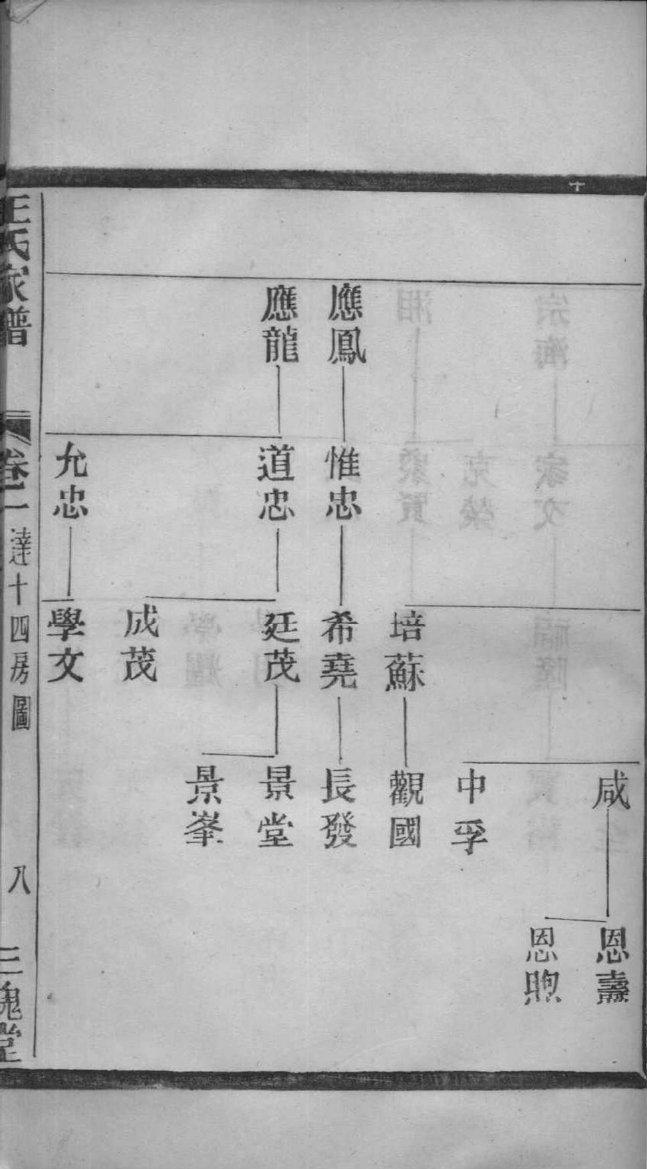 咸
恩壽
恩煦
中孚
培蘇
觀國
應鳳
惟忠
希堯
長發
應龍
道忠
廷茂
景堂
景峯
成茂
允忠
學文
王氏家譜
卷二
達十四房圖
八
三槐堂